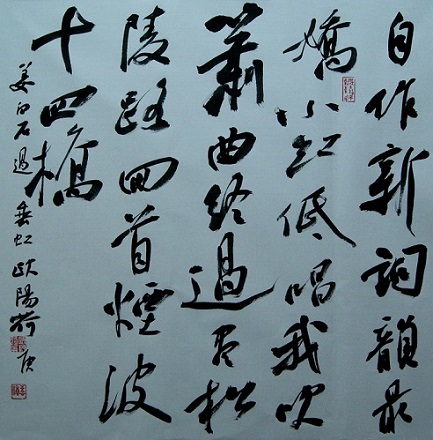 自作新詞韻最
嬌小紅低唱我吹
蕭曲終過尽松
陵路回首煙波
十四橋
姜白石過垂虹 歐陽荷庚